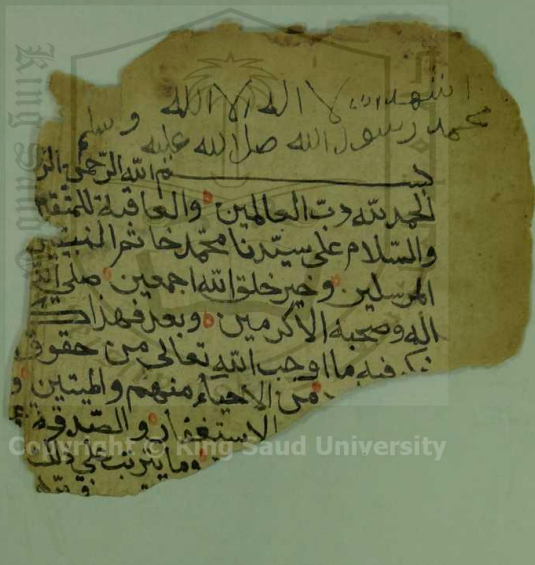 اشهد ان لا اله الا الله
محمد رسول الله صلى الله عليه وسلم
بسم الله الرحمن الر
الحمد لله رب العالمين والعاقبة للمتقين
والسلام على سيدنا محمد خاتم النبيين
المرسلين وخير خلق الله اجمعين صلى الله
اله وصحبه الاكرمين وبعد فهذا
فيه ما اوجب الله تعالى من حقوق
من الاحياء منهم والميتين و
الاستغفار والصدقة
وما يترتب على ذلك
King Saud
Copyright © King Saud University